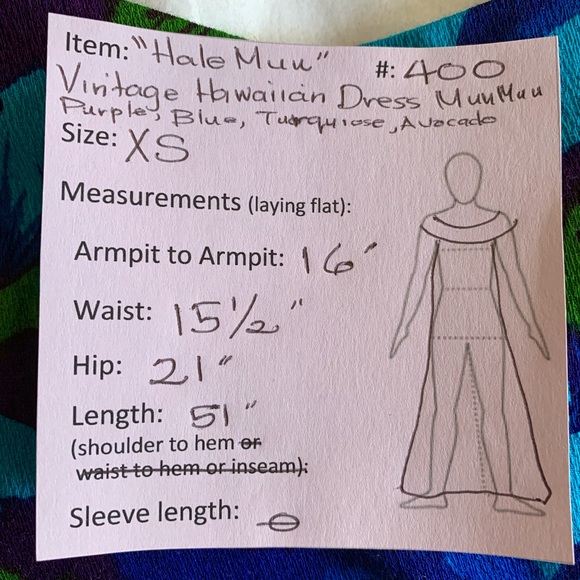 Item: "Hale Muu" #: 400
Vintage Hawaiian Dress MuuMuu
Purple, Blue, Turquiose, Avocado
Size: XS
Measurements (laying flat):
Armpit to Armpit: 16"
Waist: 15 1/2"
Hip: 21"
Length: 51"
(shoulder to hem or
waist to hem or inseam):
Sleeve length: θ